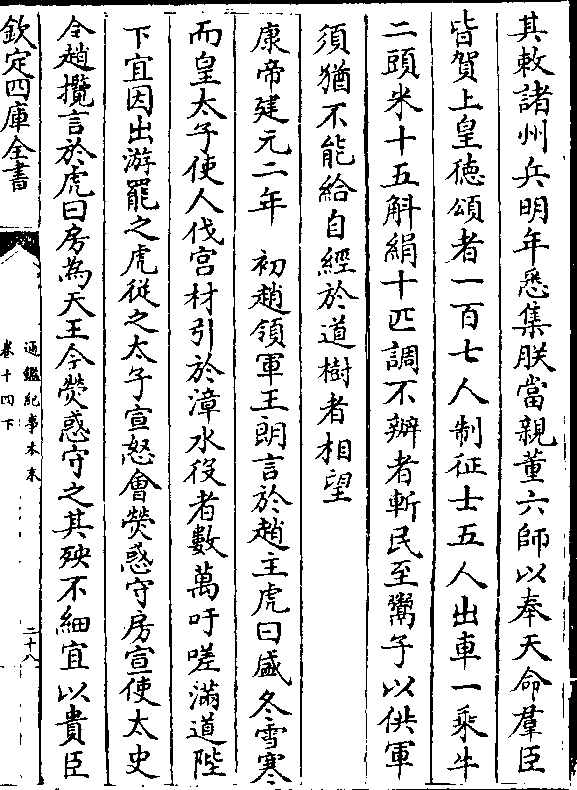 其敕諸州兵明年悉集朕當親董六師以奉天命羣臣
皆賀上皇徳頌者一百七人制征士五人出車一乘牛
二頭米十五斛絹十匹調不辦者斬民至鬻子以供軍
須猶不能給自經於道樹者相望
康帝建元二年　初趙領軍王朗言於趙主虎曰盛冬雪寒
而皇太子使人伐宮材引於漳水役者數萬吁嗟滿道陛
下宜因出游罷之虎從之太子宣怒會熒惑守房宣使太史
令趙攬言於虎曰房為天王今熒惑守之其殃不細宜以貴臣
欽定四庫全書
通鑑紀事本末
卷十四下
二十八